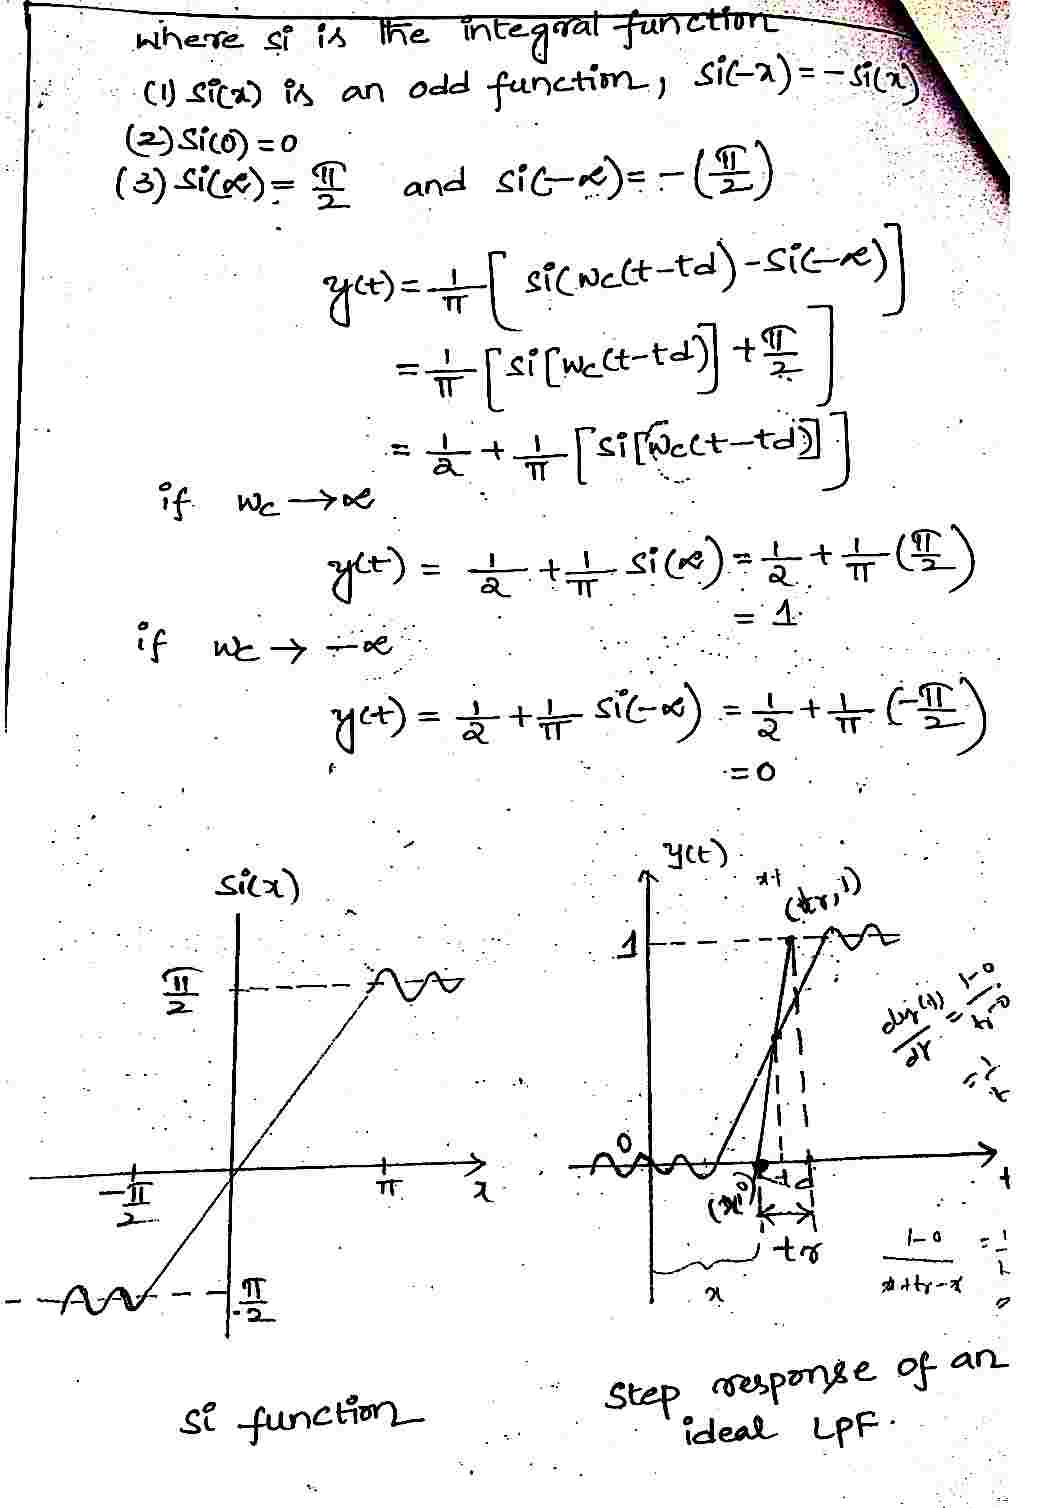 where si is the integral function
(1) si(x) is an odd function, si(-x) = -si(x)
(2) si(0) = 0
(3) si(∞) = π/2 and si(-∞) = -(π/2)
y(t) = 1/π [si(wc(t-td) - si(-∞)]
= 1/π [si[wc(t-td)] + π/2]
= 1/2 + 1/π [si[wc(t-td)]]
if wc → ∞
y(t) = 1/2 + 1/π si(∞) = 1/2 + 1/π (π/2)
= 1
if wc → -∞
y(t) = 1/2 + 1/π si(-∞) = 1/2 + 1/π (-π/2)
= 0
si(x)
π/2
-π/2
π
x
-π/2
si function
y(t)
(tr,1)
1
0
td
tr
x
t
1-0
x+tr-x
step response of an
ideal LPF.